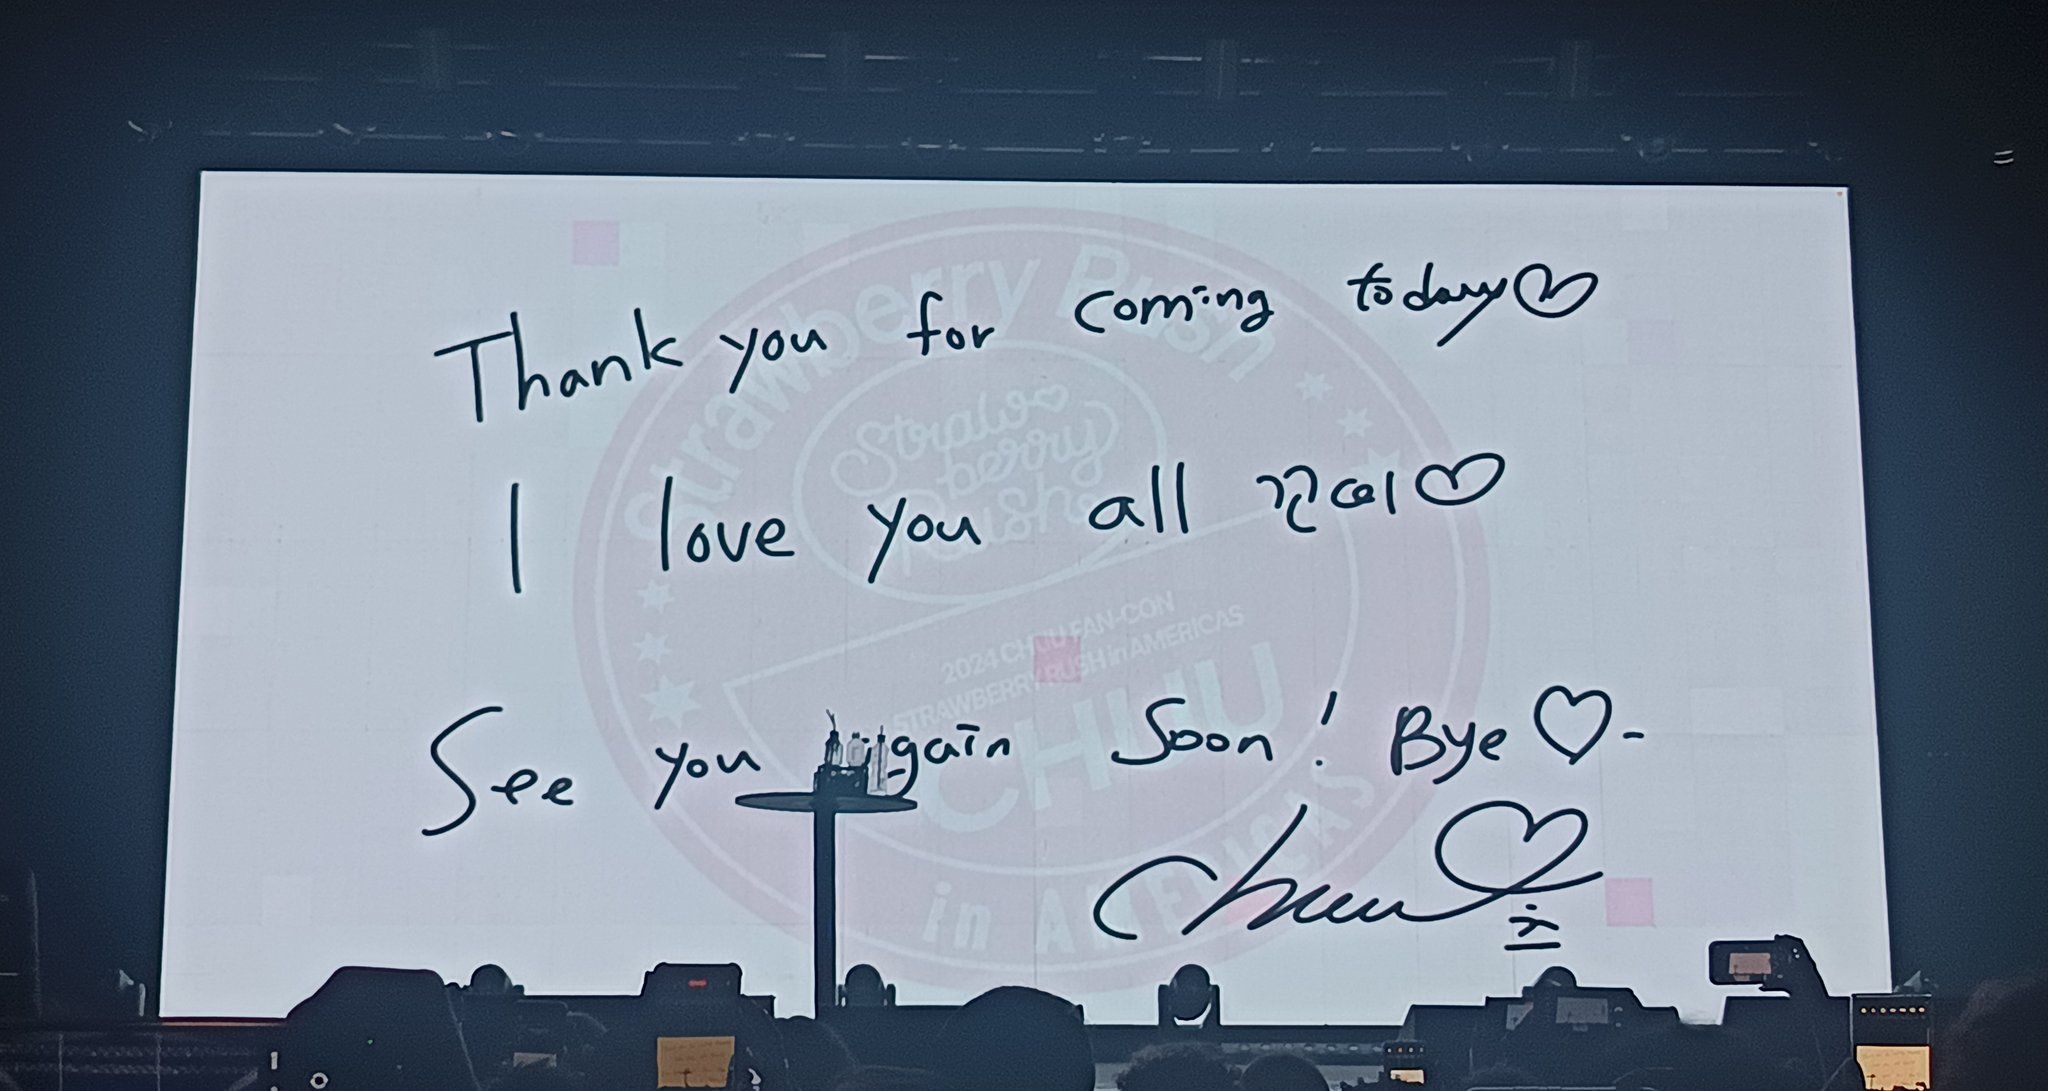 Thank you for coming today♡
I love you all 꼬띠♡
See you again Soon! Bye♡-
Chuu♡
츄
Strawberry Rush
Straw
berry
Rush
2024 CHUU FAN-CON
STRAWBERRY RUSH in AMERICAS
CHUU
in AMERICAS